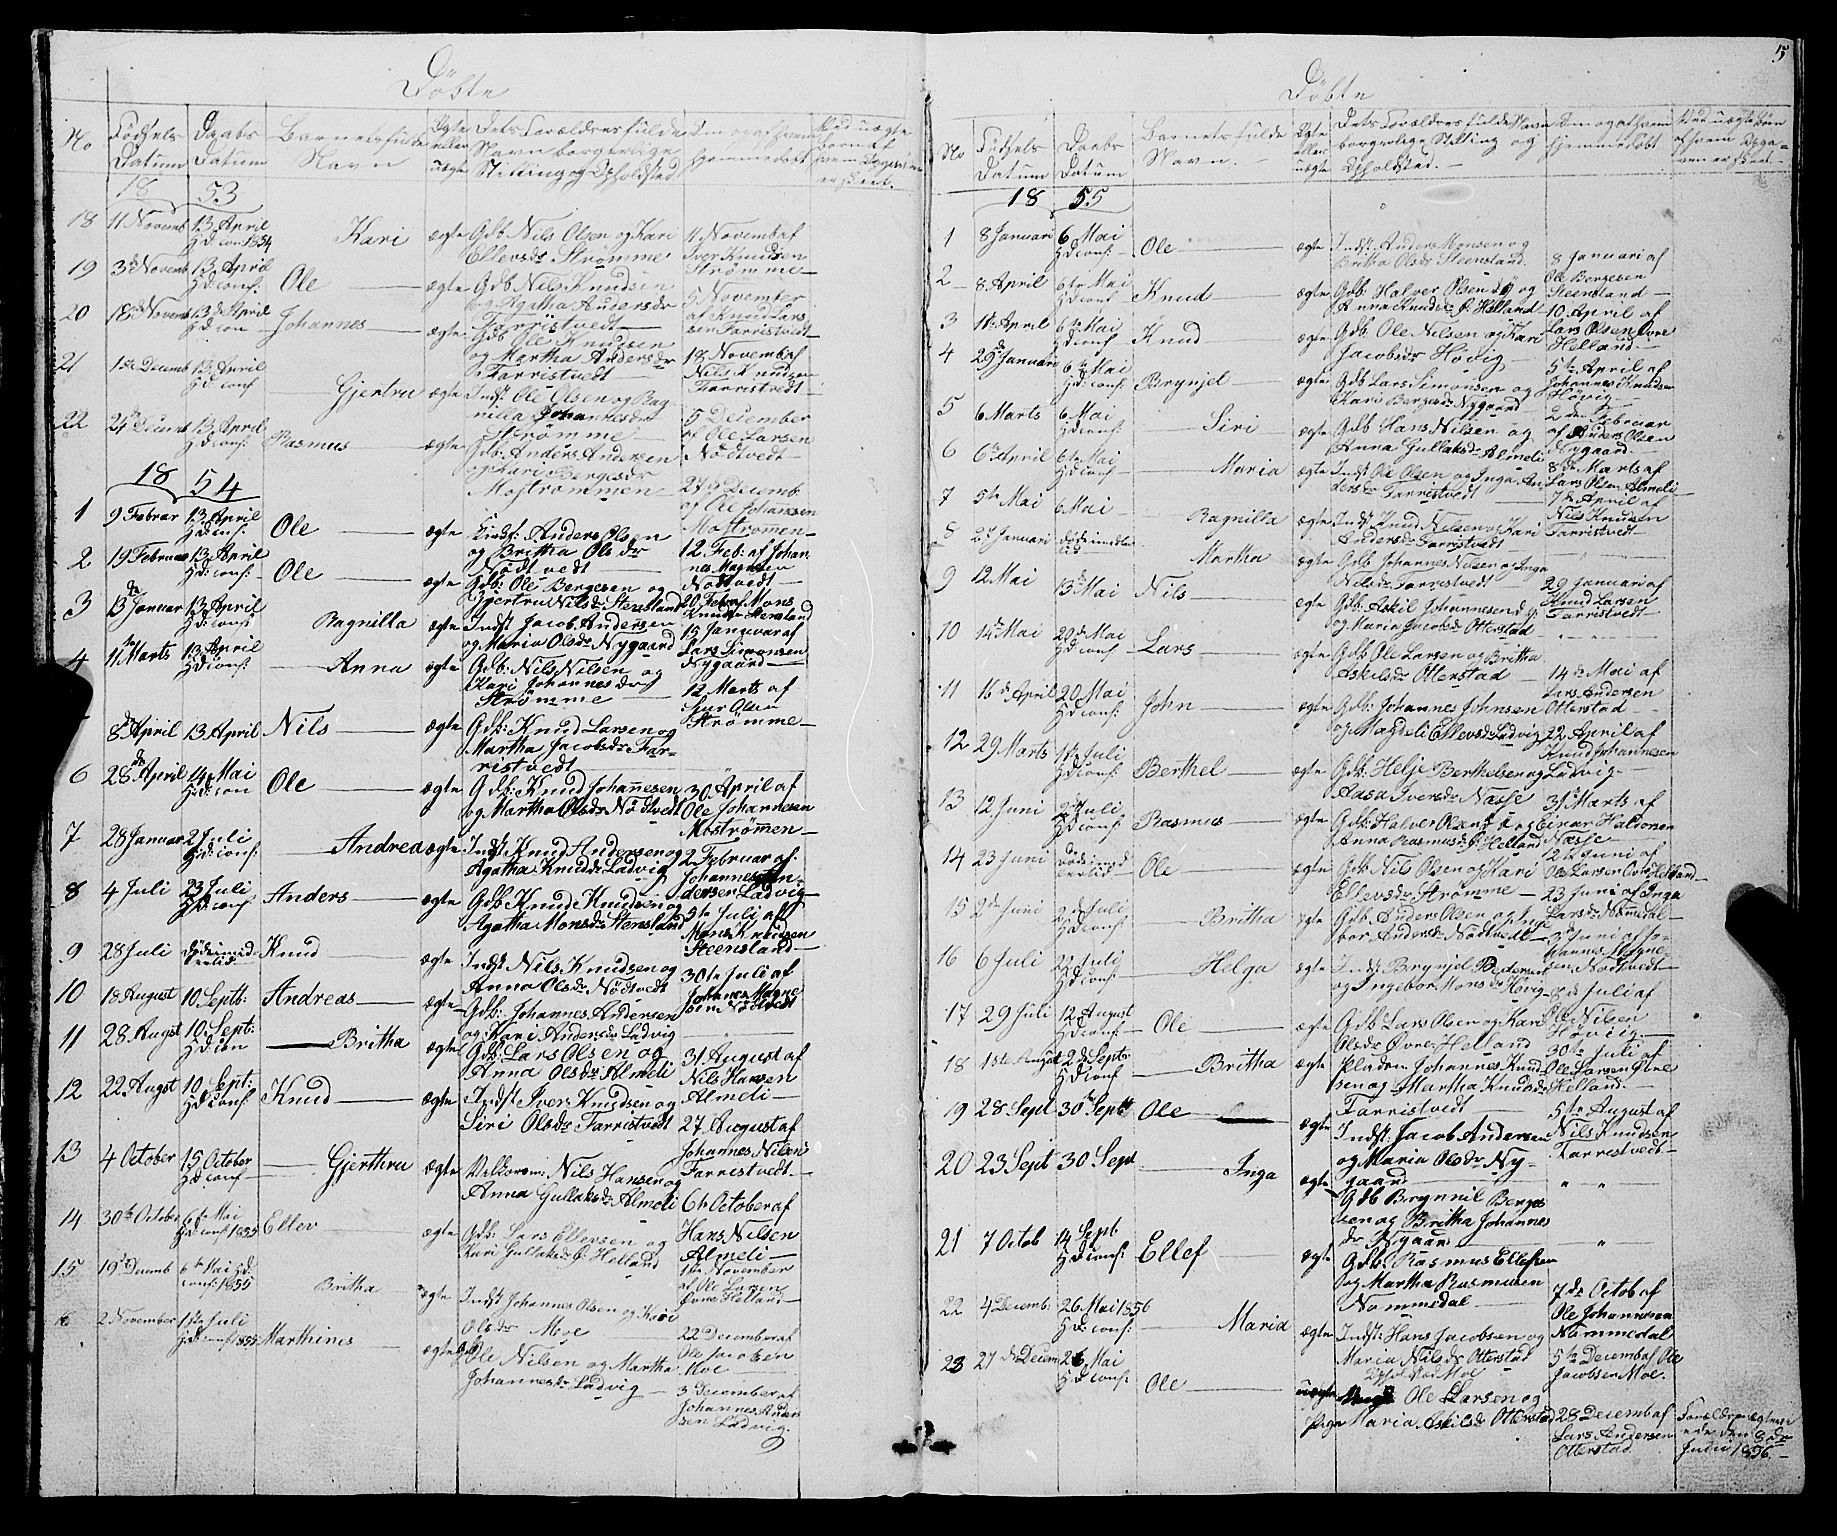 Döbte
No
Födsels Datum
Daabs Datum
Barnets fulde Navn
Ægte eller uægte
Dets Forældres fulde Navn borgerlige Stilling og Opholdsted
Om og af hvem hjemmedøbt
18 53
18 11 Novemb 13 April Hd conf 1854 Kari ægte Gdb Nils Olsen og Kari
Ellevsdr Strømme
11 Novemb af
Iver Knudsen
Strømme
19 3de Novemb 13 April Hd conf: Ole ægte Gdb Nils Knudsen
og Agatha Andersdr
Farristvedt
5 November
af Knud Lar
sen Farristvedt
20 18de Novemb 13de April Hd con Johannes ægte Gdb Ole Knudsen
og Martha Andersdr
Farristvedt
18 Novemb af
Nils Knudsen
Farristvedt
21 1ste Decemb 13 April Hd conf Gjertru ægte Indst Ole Olsen og Rag
nilla Johannesdr
Strømme
5 December
af Ole Larsen
Nödtvedt
22 Decemb 13 April Hd conf: Rasmus ægte Gdb. Anders Andersen
og Kari Bergesdr
Mostrømmen
27de Decemb
af Ole Johansen
Mostrømen
18 54
1 9 Febrar 13 April Hd conf: Ole ægte Anders Olsen
og Britha Olsdr
Nödtvedt
12 Feb: af Johan
nes Magnesen
Nödtvedt
2 19 Februar 13 April Hd: conf: Ole ægte Gdb: Ole Bergesen og
Gjertru Nilsdr Stensland
20 Feb af Mons
Knudsr Stensland
3 13de Januar 13 April Hd conf: Ragnilla ægte Indst Jacob Andersen
og Maria Olsdr Nygaard
15 Januar af
Lars Simonsen
Nygaard
4 11te Marts 13 April Hd conf: Anna ægte Gdb: Nils Nilsen og
Kari Johannesdr
Strömme
12 Marts af
Sjur Olsen
Strømme
8de April 13 April Nils ægte Gdb: Knud Larsen og
Martha Jacobsdr Far-
ristvedt
6 28de April 14 Mai Hd: con Ole ægte Gdb: Knud Johannesen
og Martha Olsdr Nödtvedt
30 April af
Ole Johannesen
Mostrømmen
7 28 Januar 2 Juli Hd: conf: Andrea ægte Indst Knud Andersen og
Agatha Knudsdr Ladvig
2 Februar af
Johannes An-
dersen Ladvig
8 4 Juli 23 Juli Hd conf: Anders ægte Gdb Knud Knudsen og
Agatha Monsdr Stensland
5te Juli af
Mons Knudsen
Steensland
9 28 Juli Død imid lertid Knud ægte Indst Nils Knudsen og
Anna Olsdr Nödtvedt
30te Juli af
Johannes Magne
sen Nödtvedt
10 18 August 10 Septb: Andreas ægte Gdb: Johannes Andersen
og Kari Andersdr Ladvig
11 28 Augst 10 Sept: Hd con Britha ægte Gdb: Lars Olsen og
Anna Olsdr Almeli
31 August af
Nils Hansen
Almeli
12 22 Augst 10 Sept: Hd conf: Knud ægte Indst Iver Knudsen og
Siri Olsdr Farristvedt
27 August af
Johannes Nilsen
Farrestvedt
13 4 October 15 October Hd conf Gjerthru ægte Nils Hansen og
Anna Gullaksdr Almeli
6te October af
Hans Nilsen
Almeli
14 30te October 6te Mai Hd conf 1855 Ellev ægte Gdb: Lars Ellefsen og
Kari Gullaksdr Ö: Helland
1ste November
af Ole Larsen
Øvre Helland
15 19de Decemb 6te Mai Hd. conf: 1855 Britha ægte Indst Johannes Olsen og Kari
Olsdr Moe
22 December af
Ole Jacobsen
Moe
16 2 November 1ste Juli Hd conf 1855 Marthines ægte Gdb Ole Nilsen og Martha
Johannesdr Ladvig
3 December af
Johannes Ander
sen Ladvig.
5
Döbte
No
Födsels Datum
Daabs Datum
Barnets fulde Navn.
Ægte eller uægte
Dets Forældres fulde Navn borgerlige Stilling og Opholdsted.
Om og af hvem hjemmedöbt
18 55
1 8 Januari 6 Mai Hd conf: Ole ægte Indst: Anders Monsen og
Britha Olsdr Steensland
8 Januari af
Ole Bergesen
Steensland
2 8 April 6te Mai Hd conf Knud ægte Gdb: Halver Olsen og
Anna Knudsdr Ö: Helland
10 April af
Lars Olsen Øvre
Helland
3 11te April 6te Mai Hd conf: Knud ægte Gdb. Ole Nilsen og Kari
Jacobsdr Hövig
5te April af
Johannes Knudsen
Hövig
4 29de Januari 6te Mai Hd: conf: Brynjel ægte Gdb Lars Simonsen og
Kari Bergesdr Nygaard
2den Februar
af Anders Olsen
Nygaard
5 6 Marts 6 Mai Hd conf: Siri ægte Gdb Hans Nilsen og
Anna Gullaksdr Almeli
8de Marts af
Lars Olsen Almeli
6 6te April 6te Mai Hd conf: Maria ægte Indst Ole Olsen og Inga An
dersdr Farristvedt
7de April af
Nils Knudsen
Farristvedt
7 5te Mai 6 Mai Ragnilla ægte Indst: Knud Nilsen og Kari
Andersdr Farristvedt
8 27 Januari Død imidler tid Martha ægte Gdb Johannes Nilsen og Inga
Nilsdr Farrestvedt
29 Januari af
Knud Larsen
Farristvedt
9 12 Mai 13de Mai Nils ægte Gdb: Askil Johannesen
og Maria Jacobsdr Otterstad
10 14de Mai 20de Mai Hd conf Lars ægte Gdb Ole Larsen og Britha
Askilsdr Otterstad
14de Mai af
Lars Andersen
Otterstad
11 16de April 20 Mai Hd conf: John ægte Gdb: Johannes Johnsen
og Magdeli Ellevsdr Ladvig
22 April af
Knud Johannesen
Ladvig
12 29 Marts 1ste Juli Hd conf: Berthel ægte Gdb: Helje Berthelsen og
Aasa Iversdr Næsse
31te Marts af
Einar Haldorsen
Næsse
13 12 Juni Juli Hd conf: Rasmus ægte Gdb: Halver Olsen og
Anna Rasmusdr Ö: Helland
12te Juni af
Ole Larsen Øvre Helland
14 23 Juni Död imid lertid Ole ægte Gdb: Nils Olsen og Kari
Ellevsdr Strømme
23 Juni af Inga
Larsdr Nommedal
15 2de Juni Juli Hd conf: Britha ægte Gdb. Anders Olsen og Inge
bor Andersdr Nödtvedt
Juni af Jo-
hannes Magne-
sen Nödtvedt
16 6 Juli 22 Juli Hd conf: Helga ægte Indst Brynjel Pedersen
og Ingebor Monsdr Hövig
8de Juli af
Ole Nilsen
Hövig
17 29 Juli 12 August Hd conf Ole ægte Gdb: Lars Olsen og Kari
Olsdr Övre Helland
30te Juli af
Ole Larsen Øvre
Helland
18 1ste August 2de Septr Hd conf Britha ægte Johannes Knud
sen og Martha Knudsdr
Farristvedt
5te August af
Nils Knudsen
Farrestvedt
19 28 Sept 30te Septb Ole ægte Indst. Jacob Andersen
og Maria Olsdr Ny-
gaard
20 23 Sept 30 Sept Inga ægte Gdb Brynnil Berges
sen og Britha Johannes
dr Nygaard
21 7 Octob 14 Sept Hd conf: Ellef ægte Gdb: Rasmus Ellefsen
og Martha Rasmusen
Nommedal
7de Octob af
Ole Johannesen
Nommedal
22 4 Decemb: 26 Mai 1856 Hd: conf: Maria ægte Indst: Hans Jacobsen og
Maria Nilsdr Otterstad
Ophold Moe
5te Decemb af Ole
Jacobsen Moe.
23 27de Decem 26 Mai Hd conf: Ole uægte Ole Larsen og
Pige Maria Askilsdr Otterstad
28 Decemb af
Lars Andersen
Otterstad.
Forældre ægtevie
ede den 8de
Juni 1856.